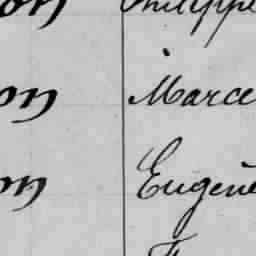 on Philippe
on Marce
on Eugène